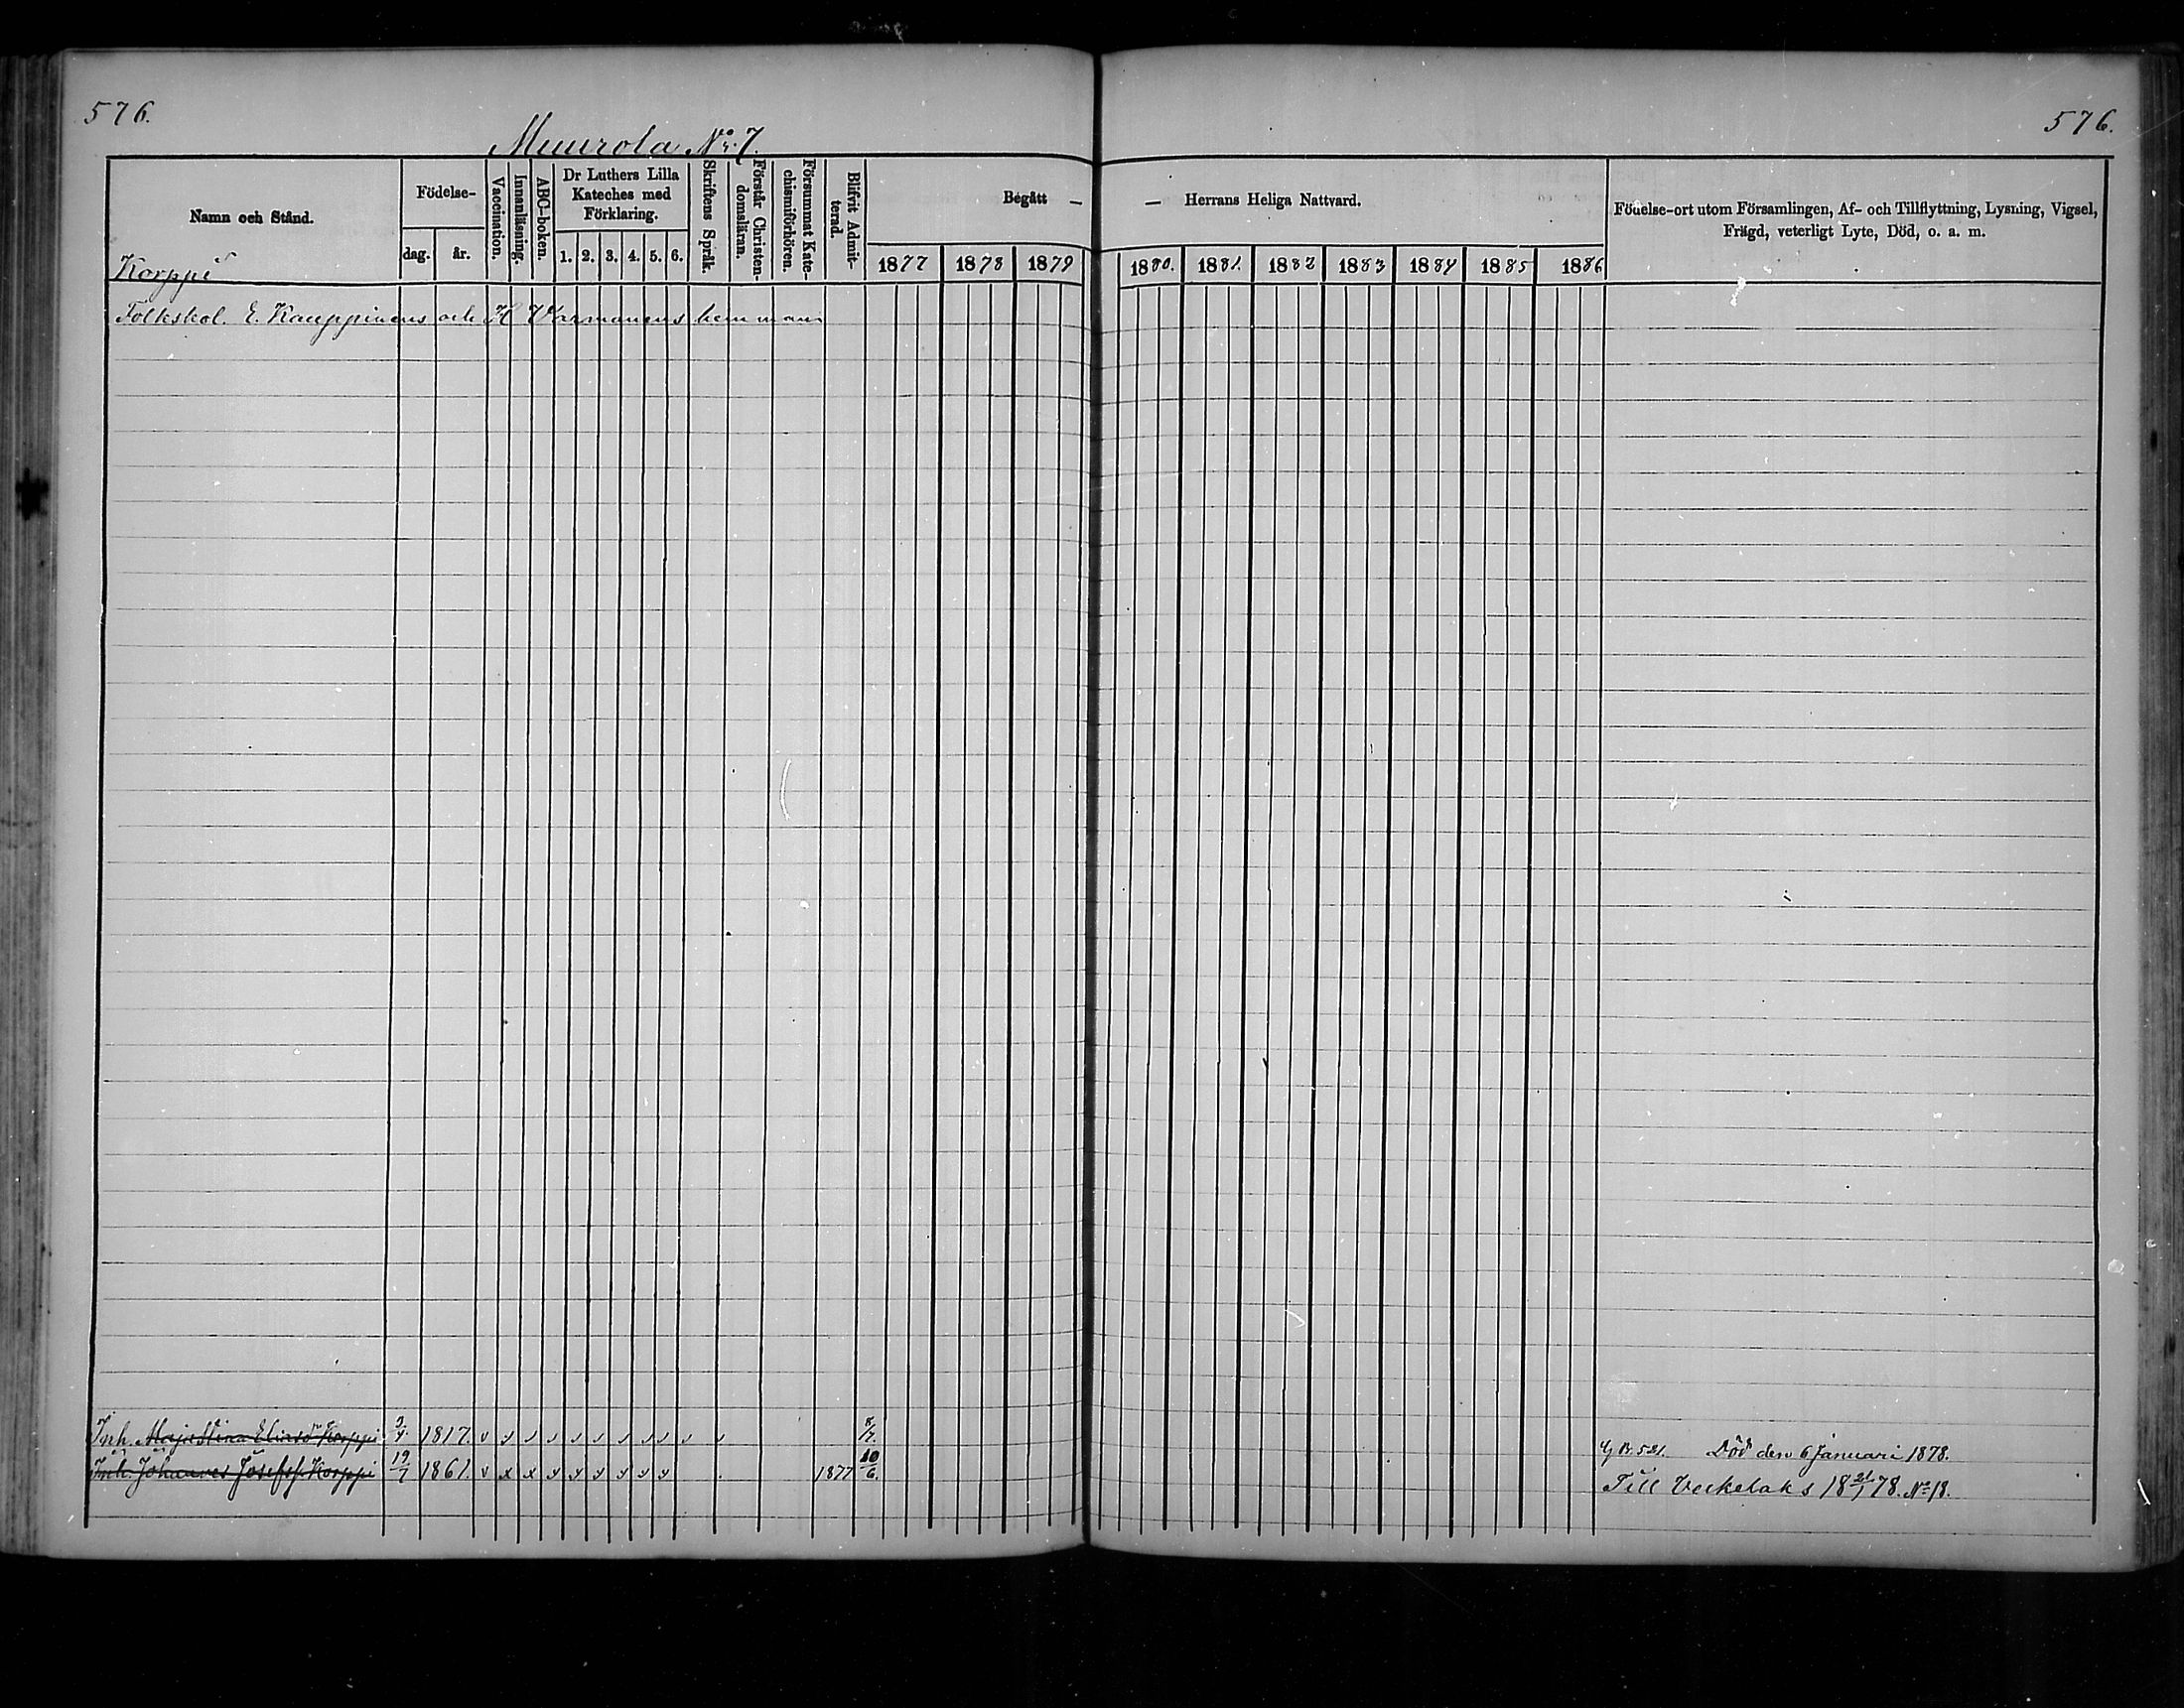 576.
576.
Muurola No. 7.
Namn och Stånd.
Födelse-
dag.
år.
Vaccination.
Innanläsning.
ABC-boken.
Dr Luthers Lilla
Kateches med
Förklaring.
1. 2. 3. 4. 5. 6.
Skriftens Språk.
Förstår Christen-
domsläran.
Försummat Kate-
chismiförhören.
Blifvit Admit-
terad.
Begått —
— Herrans Heliga Nattvard.
1877 1878 1879 1880. 1881. 1882 1883 1884 1885 1886
Födelse-ort utom Församlingen, Af- och Tillflyttning, Lysning, Vigsel,
Frägd, veterligt Lyte, Död, o. a. m.
Korppi
Folkskol. E. Kauppinens och H Varmanens hemman
Inh. Maja Stina Eliasdr Korppi 1817. v 8/7. Död den 6 Januari 1878.
Inh. Johannes Josefss. Korppi 19/7 1861. v x x 1877 10/6. Till Veckelaks 18 21/1 78. No 18.